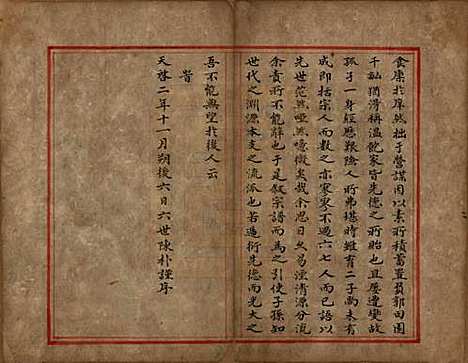 食廩北岸然拙于營謀因以素所積蓄置負郭田園
千畝猶得稱溫飽家皆先德之所貽也且屢遭變故
孤子一身經歷艱險人所弗堪時雖有二子尚未有
成即括宗人而數之亦寥寥不過六七人而已語以
先世茫然啞然噫微矣哉余思日久易湮清源分流
余責所不能辭也于是敘宗譜而為之引使子孫知
世代之淵源本支之流派也若遹衍先德而光大之
吾不能無望於後人云
旹
天啓二年十一月朔後六日六世陳朴謹序